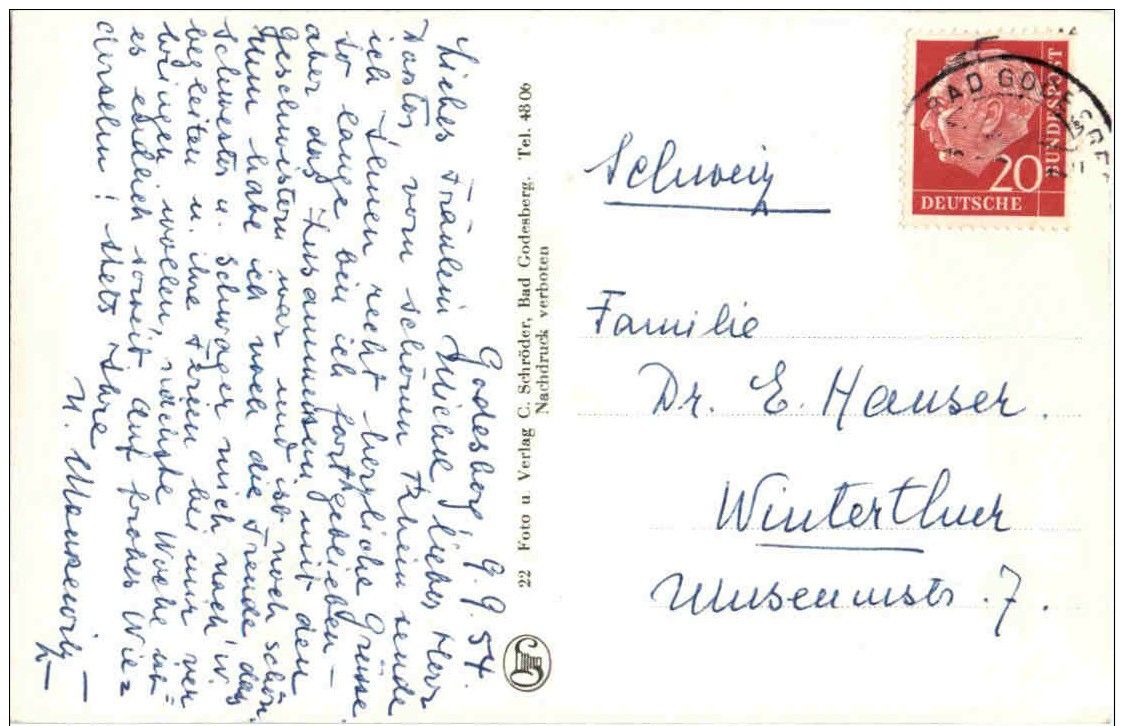 Godesberg 9.9.54.
Liebes Fräulein Julichen, lieber Herr
Doktor vom schönen Rhein sende
ich Ihnen recht herzliche Grüsse
so lange bin ich fortgeblieben –
aber das Zusammensein mit den
Geschwistern war und ist noch schön.
Nun habe ich noch die Freude das
Schwester u. Schwager mich nach W
begleiten u. ihre Ferien bei mir ver
bringen wollen, nächste Woche ist=
es endlich soweit. Auf frohes Wie=
dersehn! Stets Ihre
22 Foto u. Verlag C. Schröder, Bad Godesberg. Tel. 4806
Nachdruck verboten
BAD GODESBERG
DEUTSCHE
BUNDESPOST
20
Schweiz
Familie
Dr. E. Hauser.
Winterthur
Museumstr. 7.